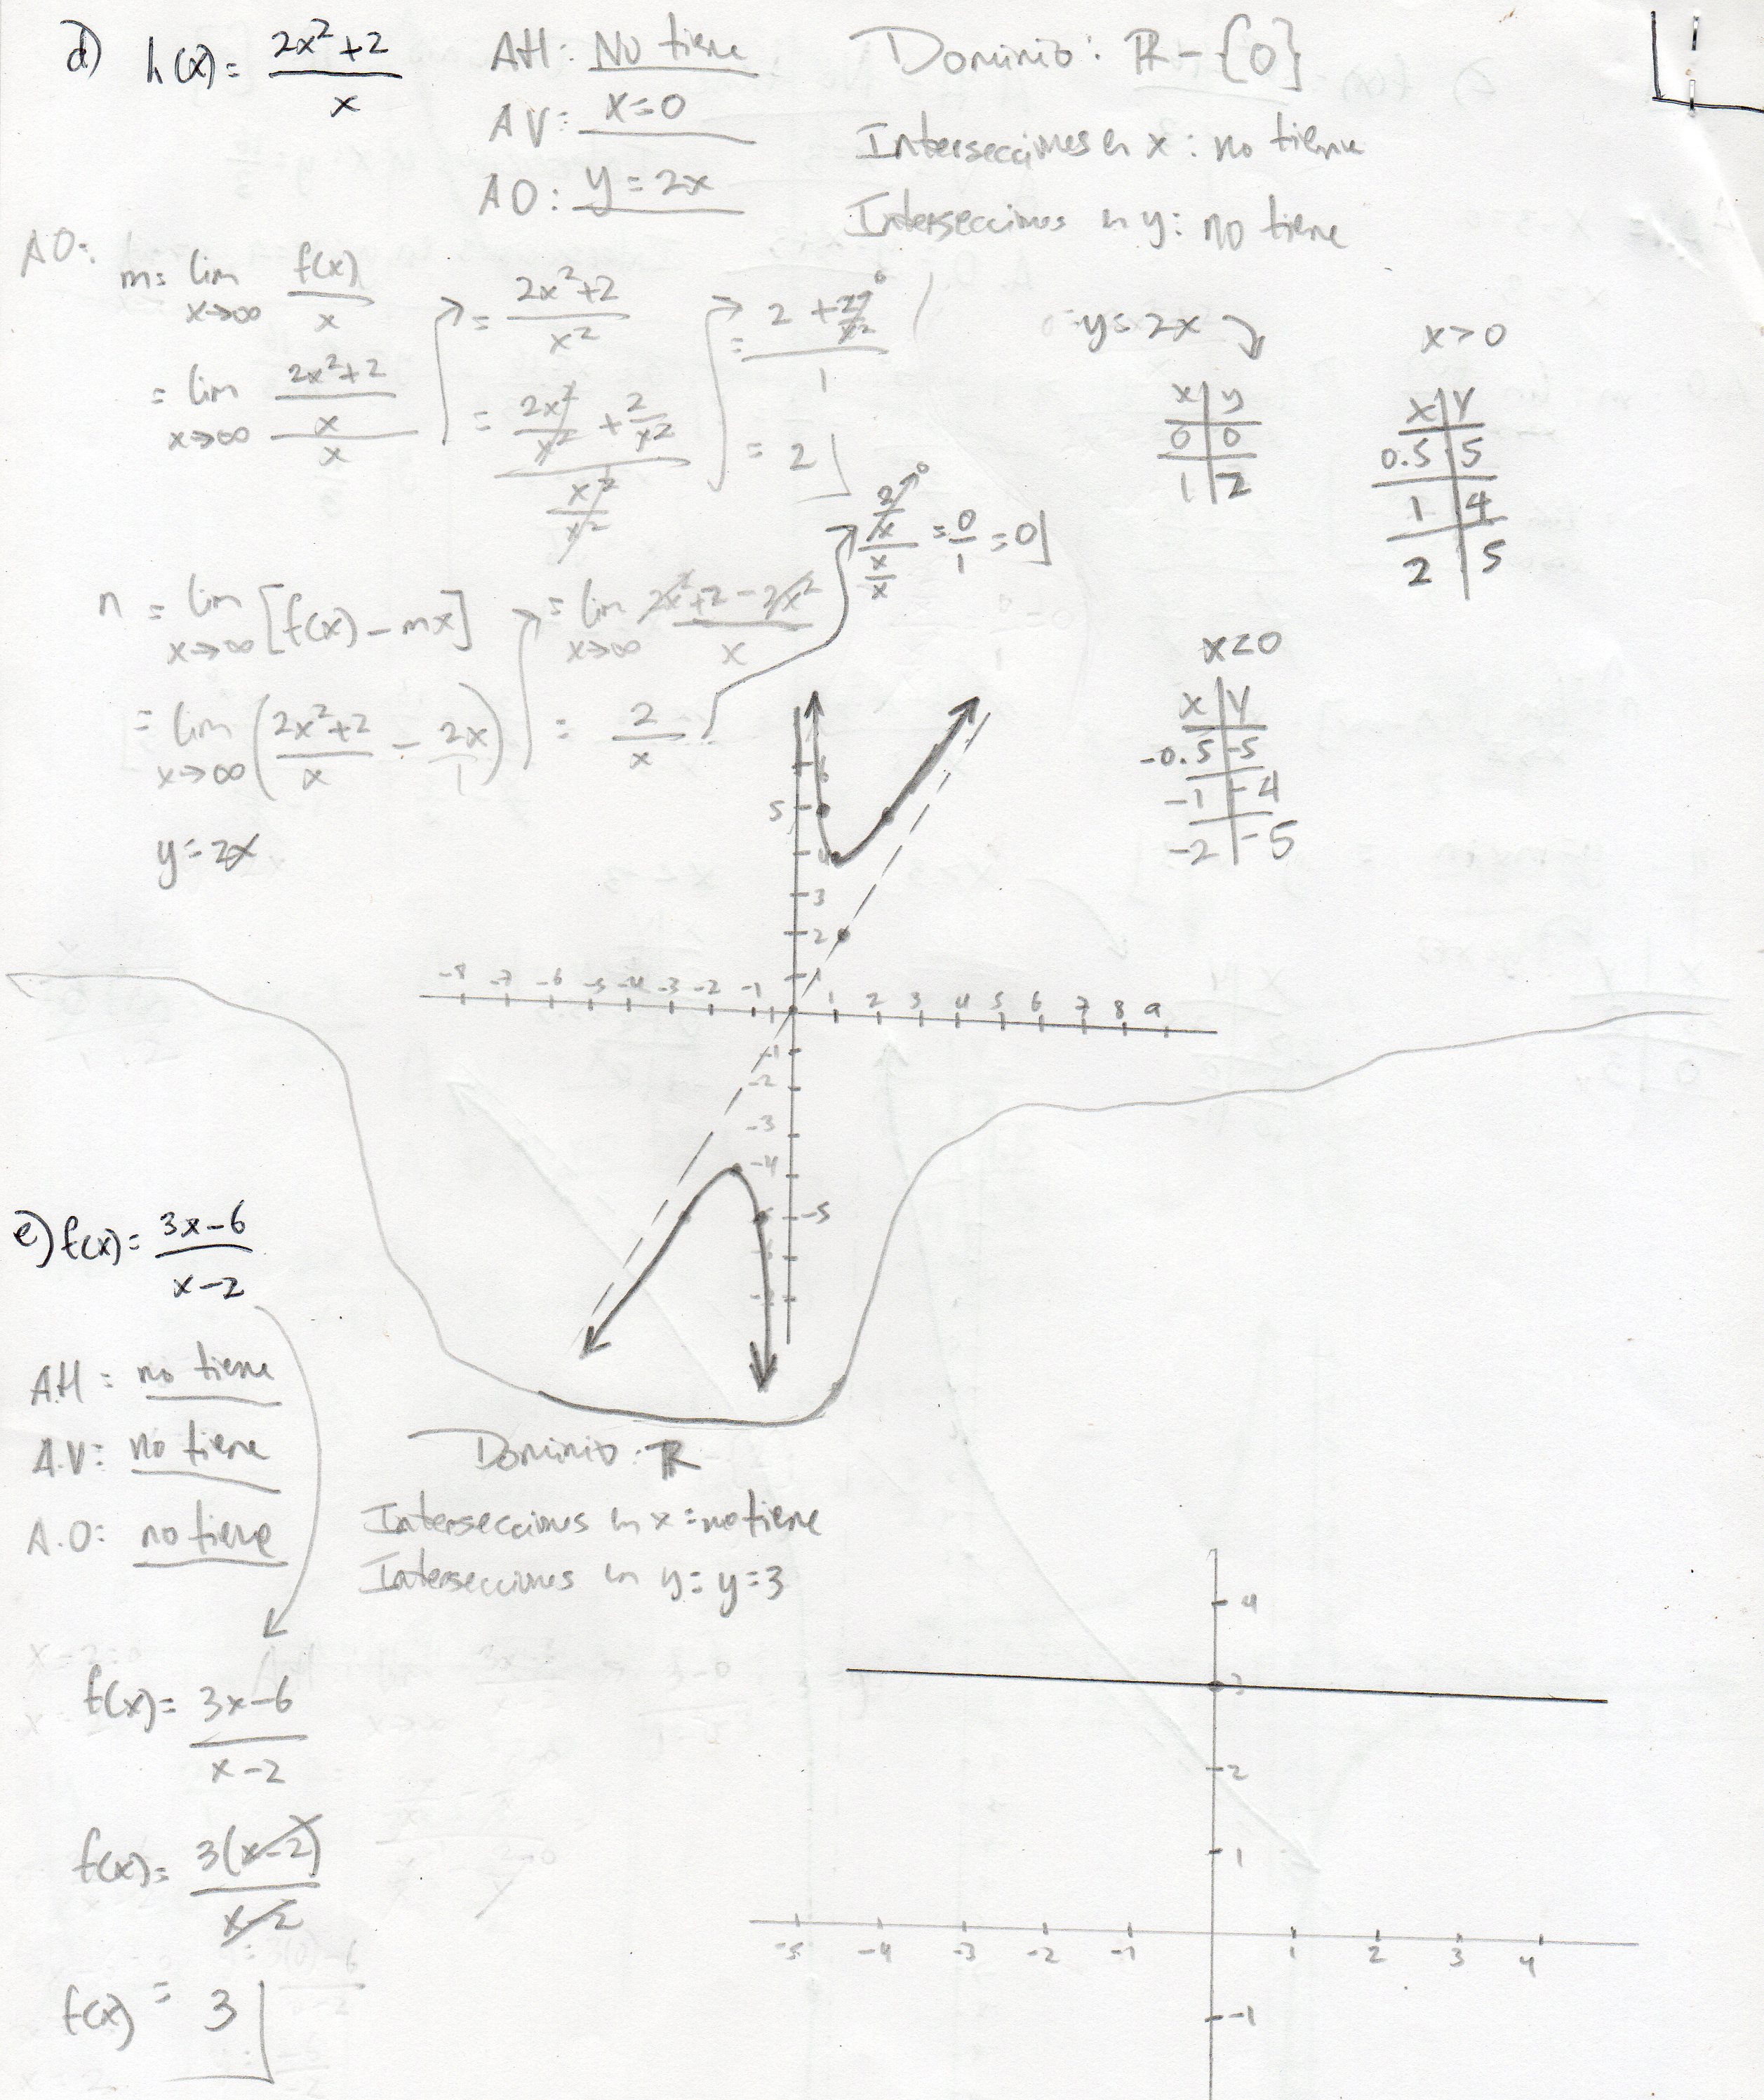 d) h(x) = (2x²+2)/x
AH: No tiene
AV: x=0
AO: y=2x
Dominio: ℝ-{0}
Intersecciones en x: no tiene
Intersecciones en y: no tiene
AO:
m= lim x→∞ f(x)/x
= lim x→∞ ((2x²+2)/x)/x
= (2x²+2)/x²
= (2x²/x² + 2/x²)/(x²/x²)
= (2 + 2/x²→0)/1
= 2
n = lim x→∞ [f(x)-mx]
= lim x→∞ ((2x²+2)/x - 2x/1)
= lim x→∞ (2x²+2-2x²)/x
= 2/x
(2/x→0)/(x/x) = 0/1 = 0
y=2x
y=2x
x y
0 0
1 2
x>0
x y
0.5 5
1 4
2 5
x<0
x y
-0.5 -5
-1 -4
-2 -5
6
5
4
3
2
1
-8 -7 -6 -5 -4 -3 -2 -1 1 2 3 4 5 6 7 8 9
-1
-2
-3
-4
-5
-6
e) f(x)= (3x-6)/(x-2)
AH: no tiene
A.V: no tiene
A.O: no tiene
Dominio: ℝ
Intersecciones en x: no tiene
Intersecciones en y: y=3
f(x)= (3x-6)/(x-2)
f(x)= 3(x-2)/(x-2)
f(x) = 3
4
3
2
1
-5 -4 -3 -2 -1 1 2 3 4
-1